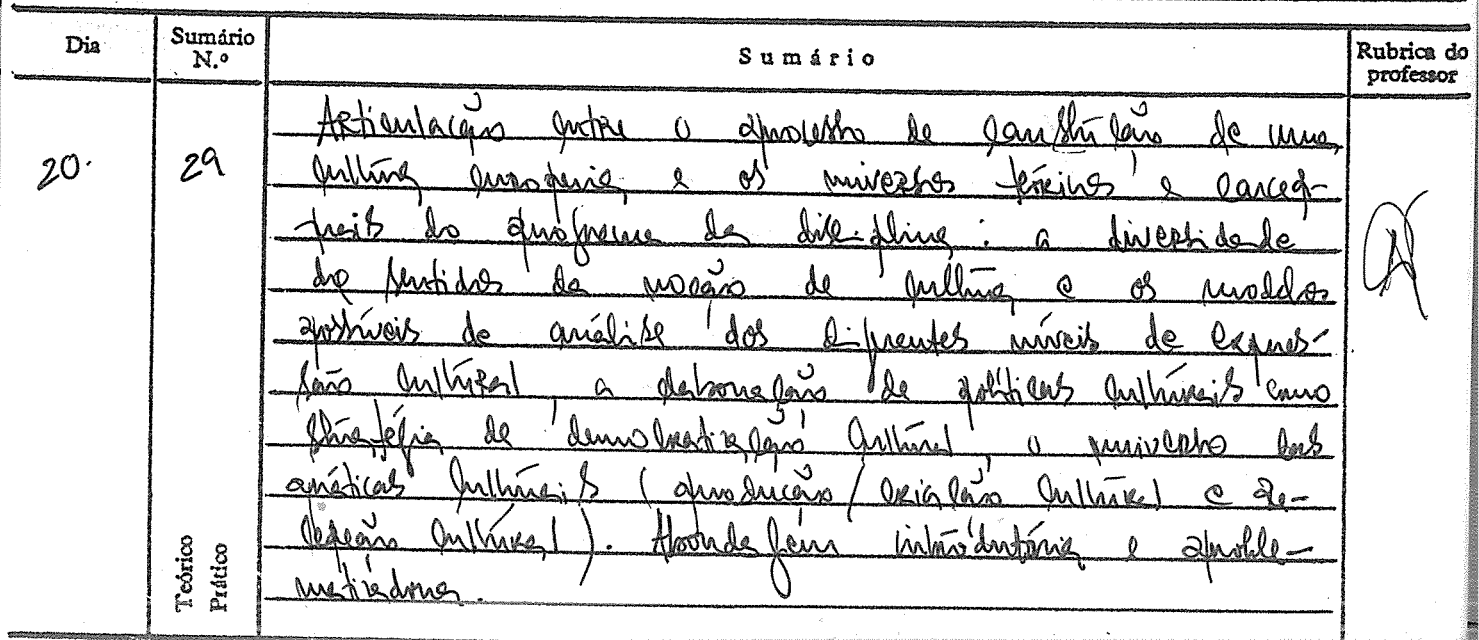 Dia
Sumário N.º
Sumário
Rubrica do professor
20.
29
Articulação entre o processo de construção de uma
cultura europeia e os universos teóricos e concep-
tuais do programa da disciplina: a diversidade
de sentidos da noção de cultura e os modelos
possíveis de análise dos diferentes níveis de expres-
são cultural a elaboração de políticas culturais como
estratégia de democratização cultural o universo das
práticas culturais (produção/criação cultural e re-
cepção cultural). Abordagem introdutória e proble-
matizadora.
Teórico
Prático